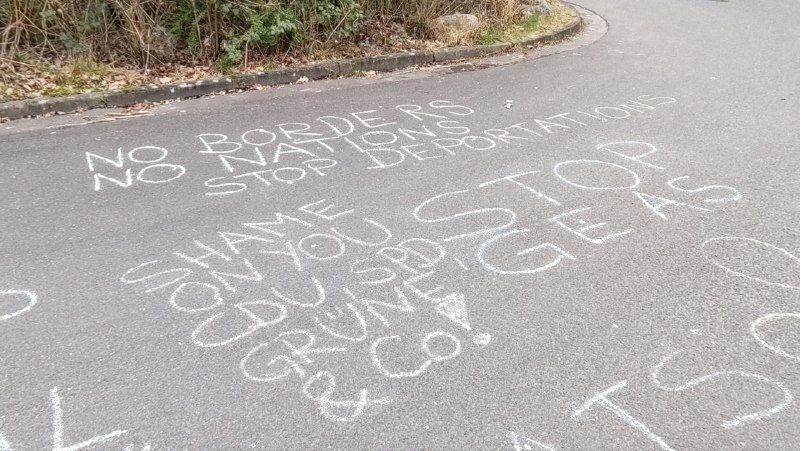 NO BORDERS
NO NATIONS
STOP DEPORTATIONS
SHAME
ON YOU
CDU SPD
GRÜNE
& CO!
STOP
GEAS